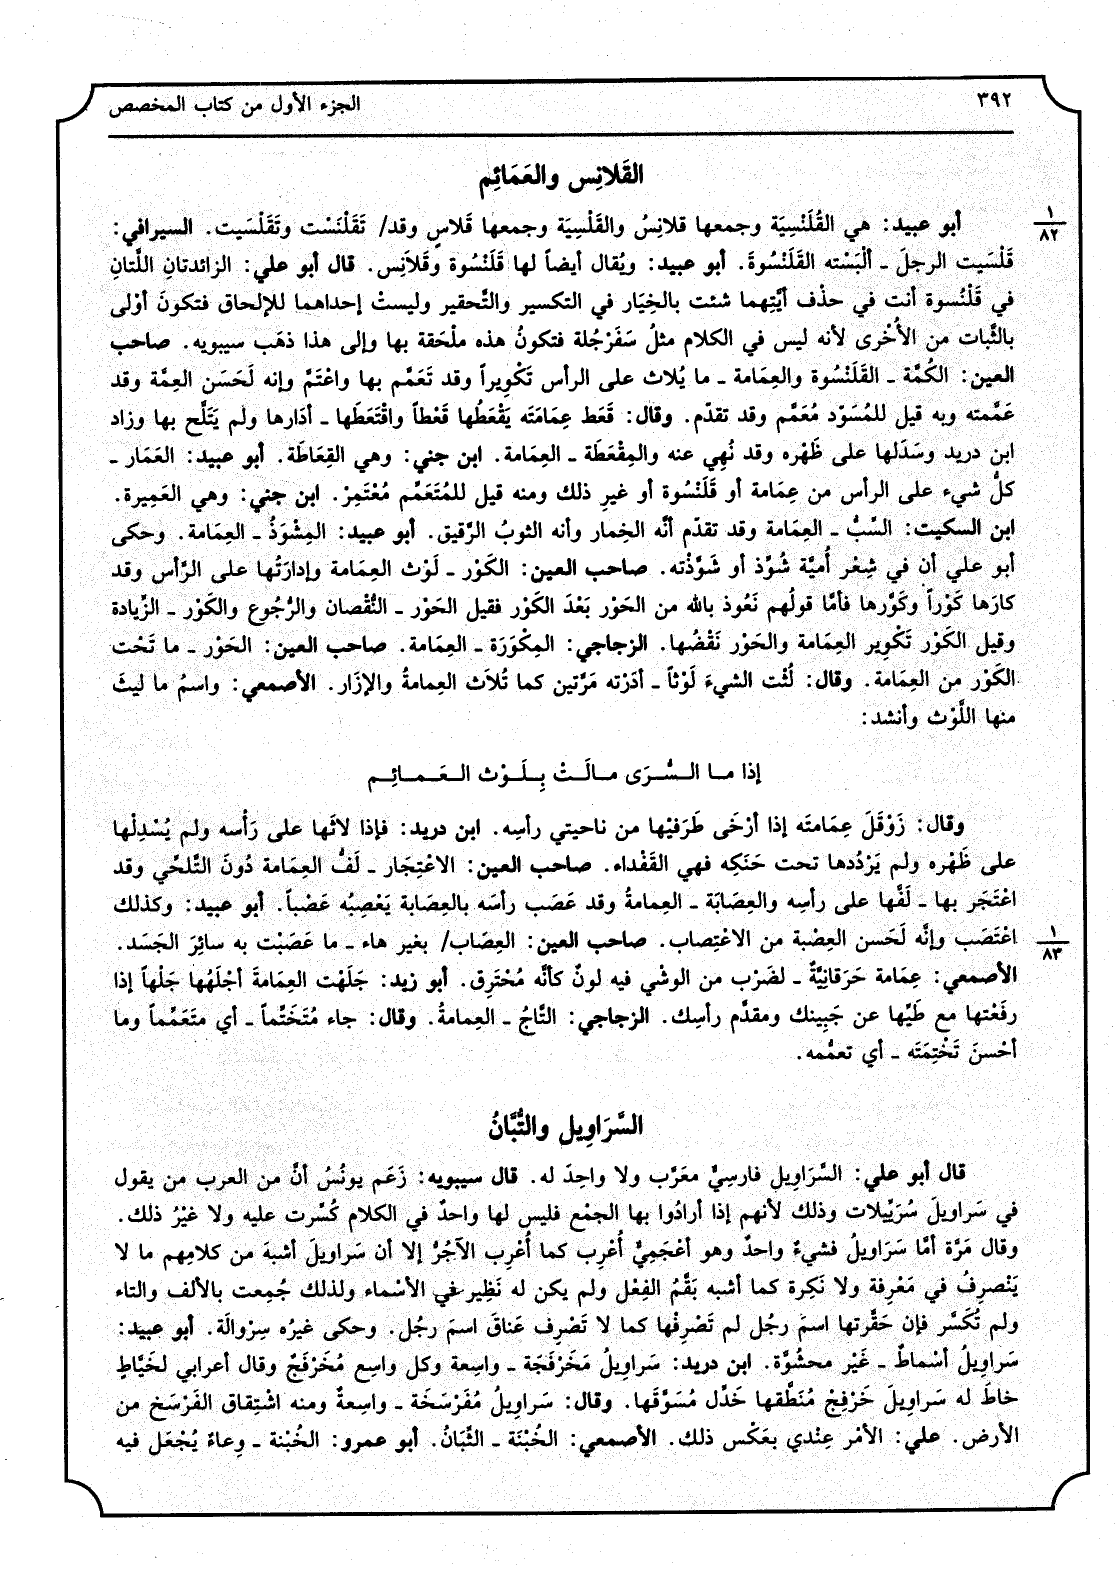 ٣٩٢
الجزء الأول من كتاب المخصص
القَلانِس والعَمَائِم
١
٨٢
أبو عبيد: هي القُلَنْسِيَة وجمعها قلانِسُ والقَلْسِيَة وجمعها قَلاسٍ وقد/ تَقَلْنَسْت وتَقَلْسَيت. السيرافي:
قَلْسَيت الرجلَ ـ ألْبَسْته القَلَنْسُوةَ. أبو عبيد: ويُقال أيضاً لها قَلَنْسُوة وقَلاَنِس. قال أبو علي: الزائدتانِ اللَّتانِ
في قَلَنْسُوة أنت في حذْف أيَّتِهما شئت بالخِيَار في التكسير والتَّحقير وليستْ إحداهما للإلحاق فتكونَ أوْلى
بالثَّبات من الأُخْرى لأنه ليس في الكلام مثلُ سَفَرْجُلة فتكونُ هذه ملْحَقة بها وإلى هذا ذهَب سيبويه. صاحب
العين: الكُمَّة ـ القَلَنْسُوة والعِمَامة ـ ما يُلاث على الرأس تَكْوِيراً وقد تَعَمَّم بها واعْتَمَّ وإنه لَحَسَن العِمَّة وقد
عَمَّمته وبه قيل للمُسَوّد مُعَمَّم وقد تقدّم. وقال: قَعَط عِمَامَتَه يَقْعَطُها قَعْطاً واقْتَعَطَها ـ أدَارها ولم يَتَلَّح بها وزاد
ابن دريد وسَدَلها على ظَهْره وقد نُهِي عنه والمِقْعَطَة ـ العِمَامة. ابن جني: وهي القِعَاطَة. أبو عبيد: العَمَار ـ
كلُّ شيء على الرأس من عِمَامة أو قَلَنْسُوة أو غيرِ ذلك ومنه قيل للمُتَعَمِّم مُعْتَمِرْ. ابن جني: وهي العَمِيرة.
ابن السكيت: السِّبُّ ـ العِمَامة وقد تقدّم أنَّه الخِمار وأنه الثوبُ الرَّقيق. أبو عبيد: المِشْوَذُ ـ العِمَامة. وحكى
أبو علي أن في شِعْر أُميَّة شُوِّذ أو شَوَّذْته. صاحب العين: الكَوْر ـ لَوْث العِمَامة وإدارَتُها على الرَّأس وقد
كارَها كَوْراً وكَوَّرها فأمَّا قولُهم نَعُوذ بالله من الحَوْر بَعْدَ الكَوْر فقيل الحَوْر ـ النُّقْصان والرُّجُوع والكَوْر ـ الزِّيادة
وقيل الكَوْر تَكْوِير العِمَامة والحَوْر نَقْضُها. الزجاجي: المِكْوَرَة ـ العِمَامة. صاحب العين: الحَوْر ـ ما تَحْت
الكَوْر من العِمَامة. وقال: لُثْت الشيءَ لَوْثاً ـ أدَرْته مَرَّتين كما تُلاَث العِمامةُ والإزَار. الأصمعي: واسمُ ما لِيثَ
منها اللَّوْث وأنشد:
إذا ما السُّرَى مالَتْ بِلَوْث العَمائِم
وقال: زَوْقَلَ عِمَامتَه إذا أرْخَى طَرَفَيْها من ناحيتي رأسِه. ابن دريد: فإذا لاثَها على رَأْسه ولم يُسْدِلْها
على ظَهْره ولم يَرْدُدها تحت حَنَكِه فهي القَفْداء. صاحب العين: الاعْتِجَار ـ لَفُّ العِمَامة دُونَ التَّلحِّي وقد
اعْتَجَر بها ـ لَفَّها على رأسِه والعِصَابَة ـ العِمامةُ وقد عَصَب رأسَه بالعِصَابة يَعْصِبُه عَصْباً. أبو عبيد: وكذلك
١
٨٣
اعْتَصَب وإنَّه لَحَسن العِصْبة من الاعْتِصاب. صاحب العين: العِصَاب/ بغير هاء ـ ما عَصَبْت به سائِرَ الجَسَد.
الأصمعي: عِمَامة حَرَقانِيَّةٌ ـ لضَرْب من الوشْي فيه لونٌ كأنَّه مُحْترِق. أبو زيد: جَلَهْت العِمامةَ أجْلَهُها جَلْهاً إذا
رفَعْتها مع طَيِّها عن جَبِينك ومقدَّم رأسِك. الزجاجي: التَّاجُ ـ العِمامةُ. وقال: جاء مُتَخَتِّماً ـ أي متَعَمِّماً وما
أحْسنَ تَخْتِمَتَه ـ أي تعمُّمه.
السَّرَاوِيل والتُّبَّانُ
قال أبو علي: السَّرَاوِيل فارسِيٌّ معَرَّب ولا واحِدَ له. قال سيبويه: زَعَم يونُسُ أنَّ من العرب من يقول
في سَراوِيلَ سُرَيِّيلات وذلك لأنهم إذا أرادُوا بها الجَمْع فليس لها واحدٌ في الكلام كُسِّرت عليه ولا غيْرُ ذلك.
وقال مَرَّة أمَّا سَرَاوِيلُ فشيءٌ واحدٌ وهو أعْجَمِيٌّ أُعْرِب كما أُعْرِب الآجُرُّ إلا أن سَراوِيلَ أشبهَ من كلامِهم ما لا
يَنْصرِفُ في مَعْرِفة ولا نَكِرة كما أشبه بَقَّمُ الفِعْل ولم يكن له نَظِير في الأسْماء ولذلك جُمِعت بالألف والتاء
ولم تُكَسَّر فإن حَقَّرتها اسمَ رجُل لم تَصْرِفْها كما لا تَصْرِف عَناقَ اسمَ رجُل. وحكى غيرُه سِرْوالَة. أبو عبيد:
سَراوِيلُ أسْماطٌ ـ غَيْر محشُوَّة. ابن دريد: سَراوِيلُ مَخَرْفَجَة ـ واسِعة وكل واسِع مُخَرْفَجٌ وقال أعرابي لخَيَّاطٍ
خاطَ له سَراوِيلَ خَرْفِجْ مُنَطَّقها خَدِّل مُسَوَّقَها. وقال: سَراوِيلُ مُفَرْسَخَة ـ واسِعةٌ ومنه اشْتِقاق الفَرْسَخ من
الأرض. علي: الأمْر عِنْدي بعَكْس ذلك. الأصمعي: الخُبْنَة ـ التُّبَانُ. أبو عمرو: الخُبْنة ـ وِعاءٌ يُجْعَل فيه